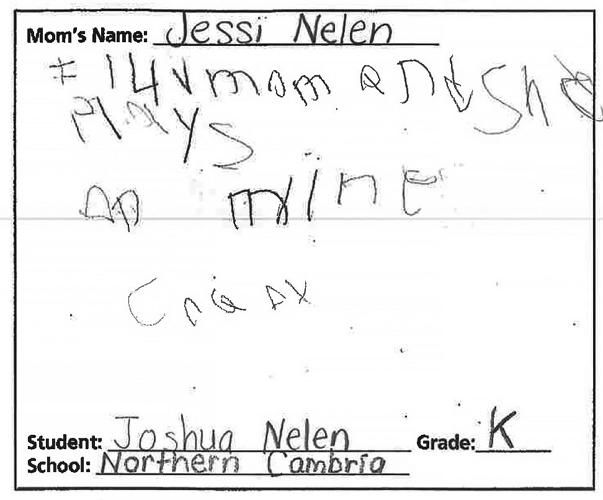 Mom's Name: Jessi Nelen
I l4v mom and She
Plays
mine
Student: Joshua Nelen Grade: K
School: Northern Cambria